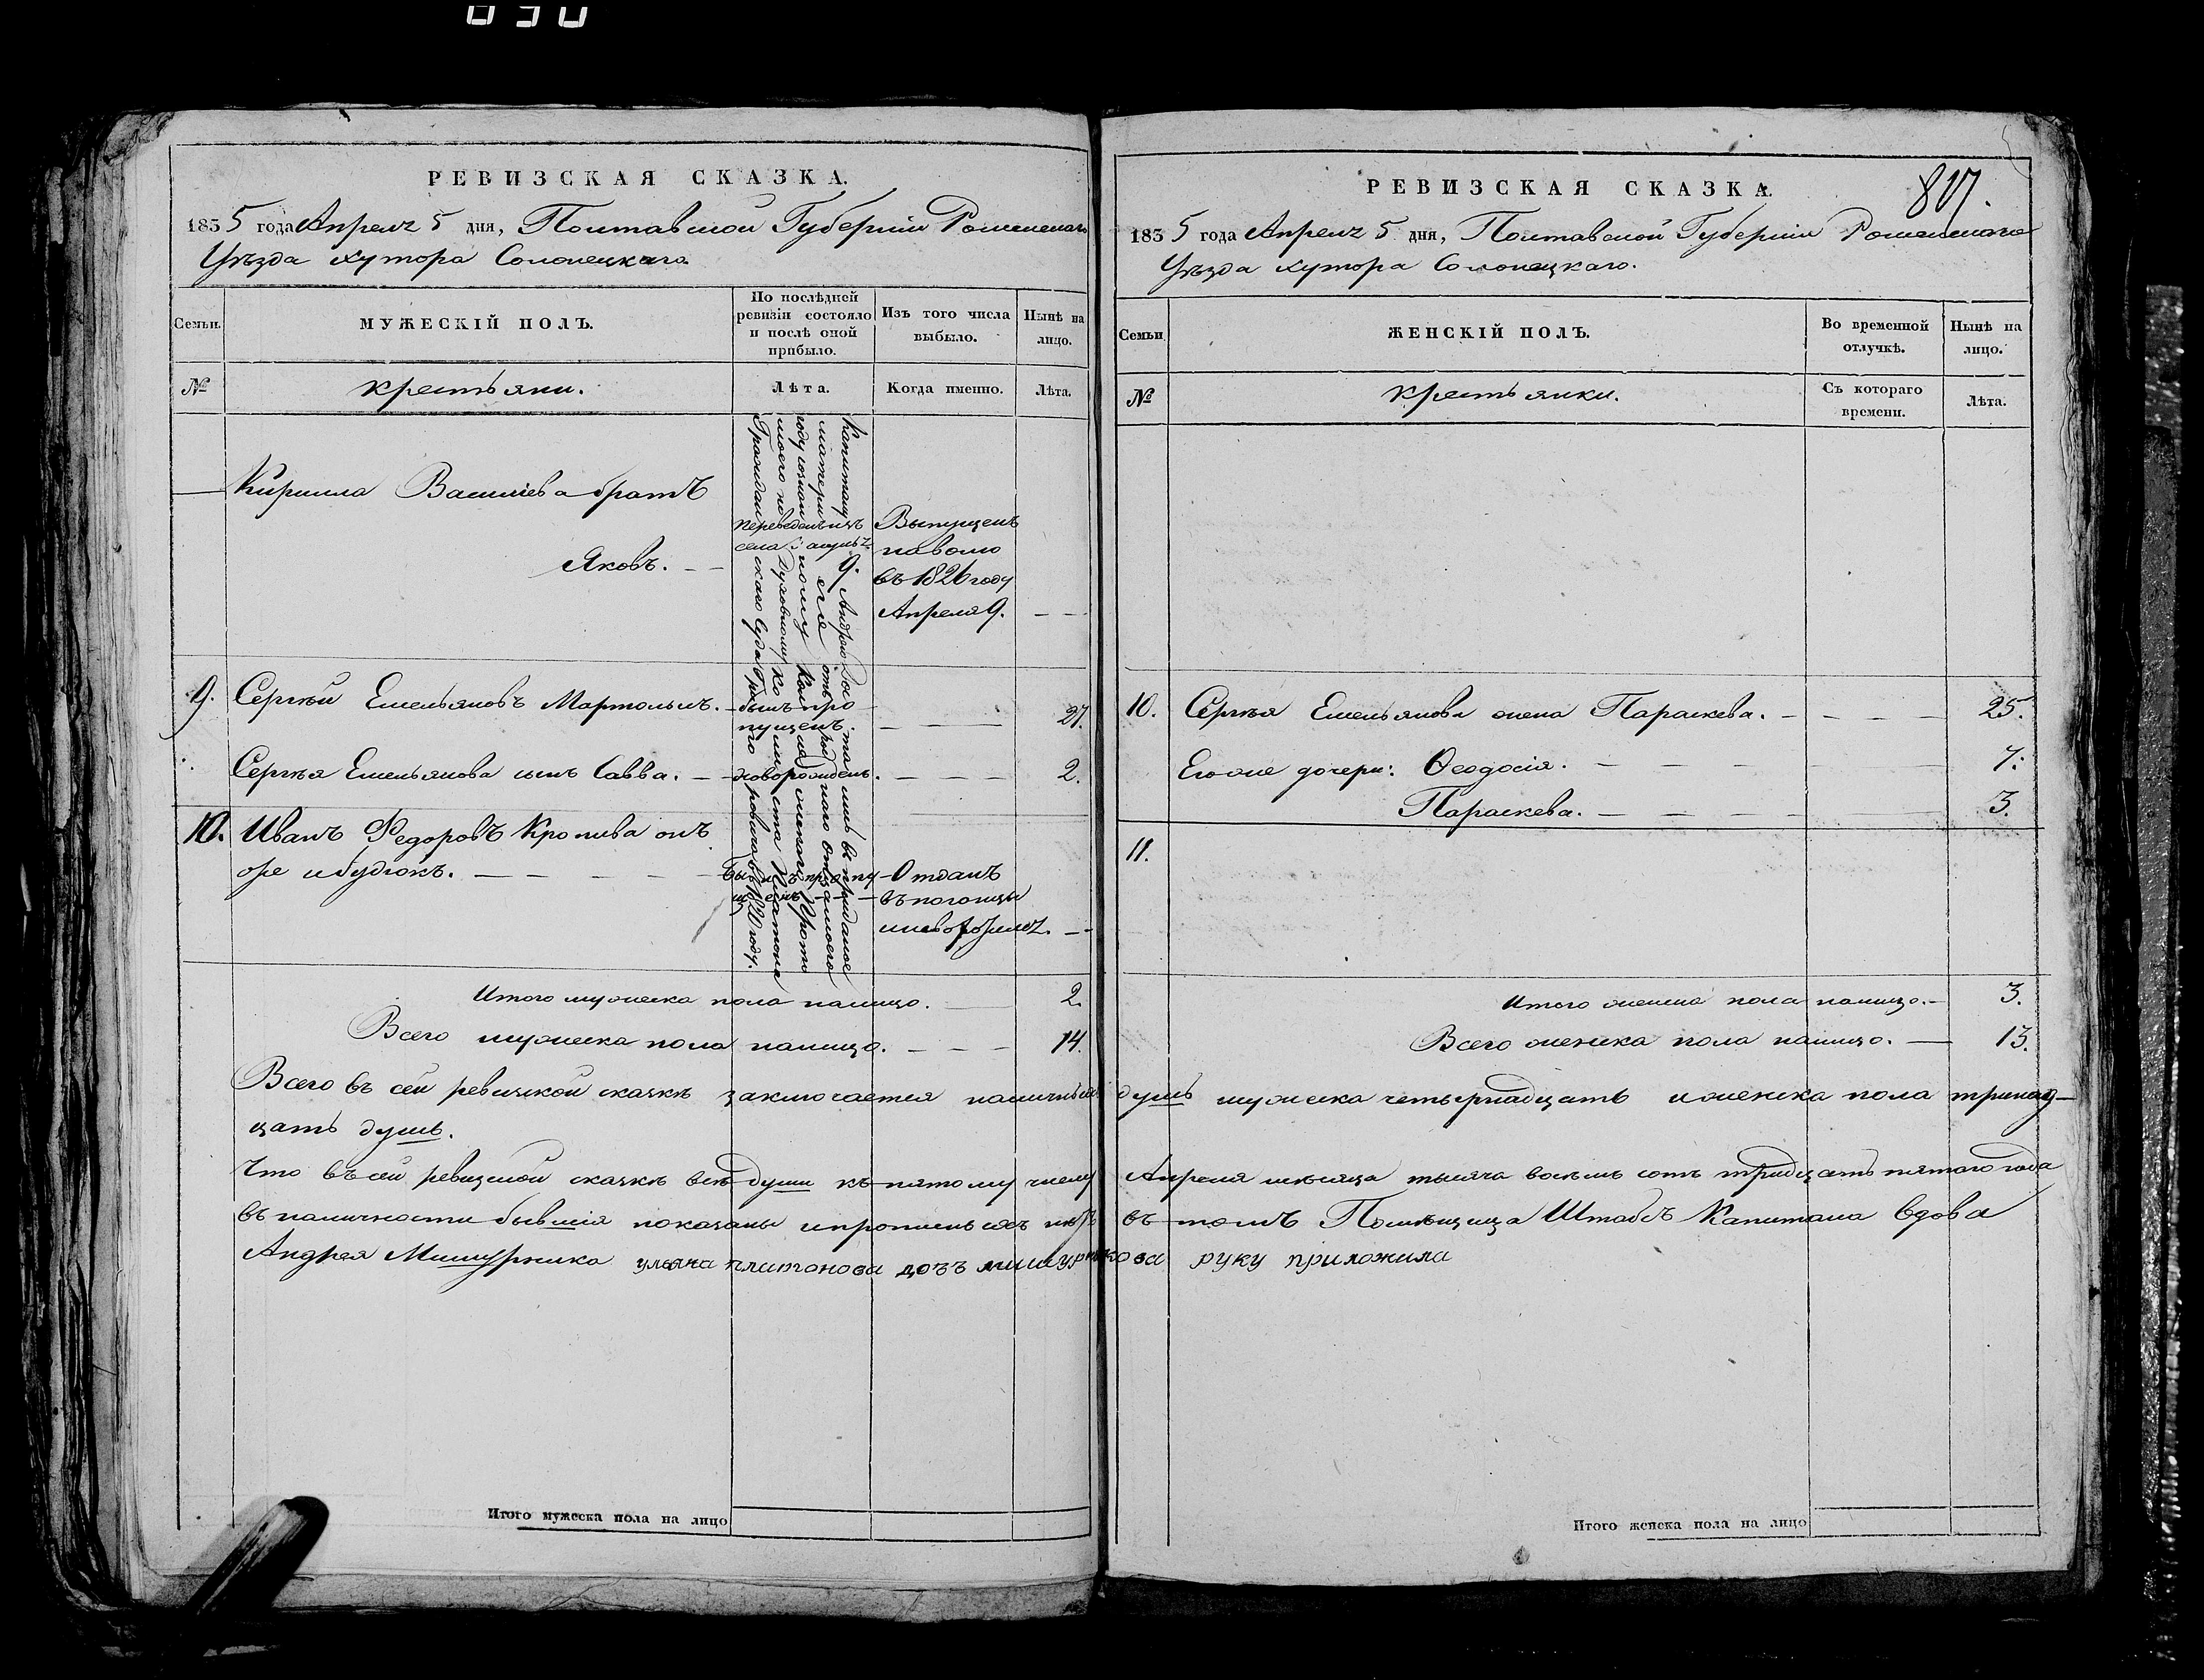 030
РЕВИЗСКАЯ СКАЗКА.
1835 года Апреля 5 дня, Полтавской Губернии Роменскаго
Уезда хутора Солонецкаго.
Семьи.
МУЖЕСКІЙ ПОЛЪ.
По послѣдней
ревизіи состояло
и послѣ оной
прибыло.
Изъ того числа
выбыло.
Нынѣ на
лицо.
№
крестьяни.
Лѣта.
Когда именно.
Лѣта.
Кирилла Васильева братъ
Яковъ.
переведенъ изъ
села
9.
Выпущенъ
наволю
въ 1826 году
Апреля 9.
9. Сергѣй Емельяновъ
былъ про
пущенъ.
27.
Сергѣя Емельянова сынъ Савва.
новорожденъ.
2.
10. Иванъ Федоровъ Кропива онъ
оре и будюкъ.
Отданъ
въ погонцы
Андрею
матери его отъ роднаго отца моего
моего по духовному
Гражданскаго Суда 1820 году.
Итого мужеска пола налицо. 2.
Всего мужеска пола налицо. 14.
Всего въ сей ревизкой сказкѣ заключается наличныхъ
цать душъ.
Что въ сей ревизской сказкѣ всѣ души къ пятому числу
въ наличности бывшія показаны и прописныхъ нѣтъ
Андрея Мишурника ульяна платонова дочъ мишурникова
Итого мужеска пола на лицо
РЕВИЗСКАЯ СКАЗКА.
817.
1835 года Апреля 5 дня, Полтавской Губернии Роменскаго
Уезда хутора Солонецкаго.
Семьи
ЖЕНСКІЙ ПОЛЪ.
Во временной
отлучкѣ.
Нынѣ на
лицо.
№
крестьянки.
Съ котораго
времени.
Лѣта.
10. Сергѣя Емельянова жена Параскева. 25.
Его же дочери: Ѳеодосія. 7.
Параскева. 3.
11.
Итого женска пола налицо. 3.
Всего женска пола налицо. 13.
душъ мужеска четырнадцать и женска пола тринад-
Апреля мѣсяца тысяча восемь сотъ тридцать пятого года
въ томъ Помѣщица Штабсъ Капитана вдова
руку приложила
Итого женска пола на лицо